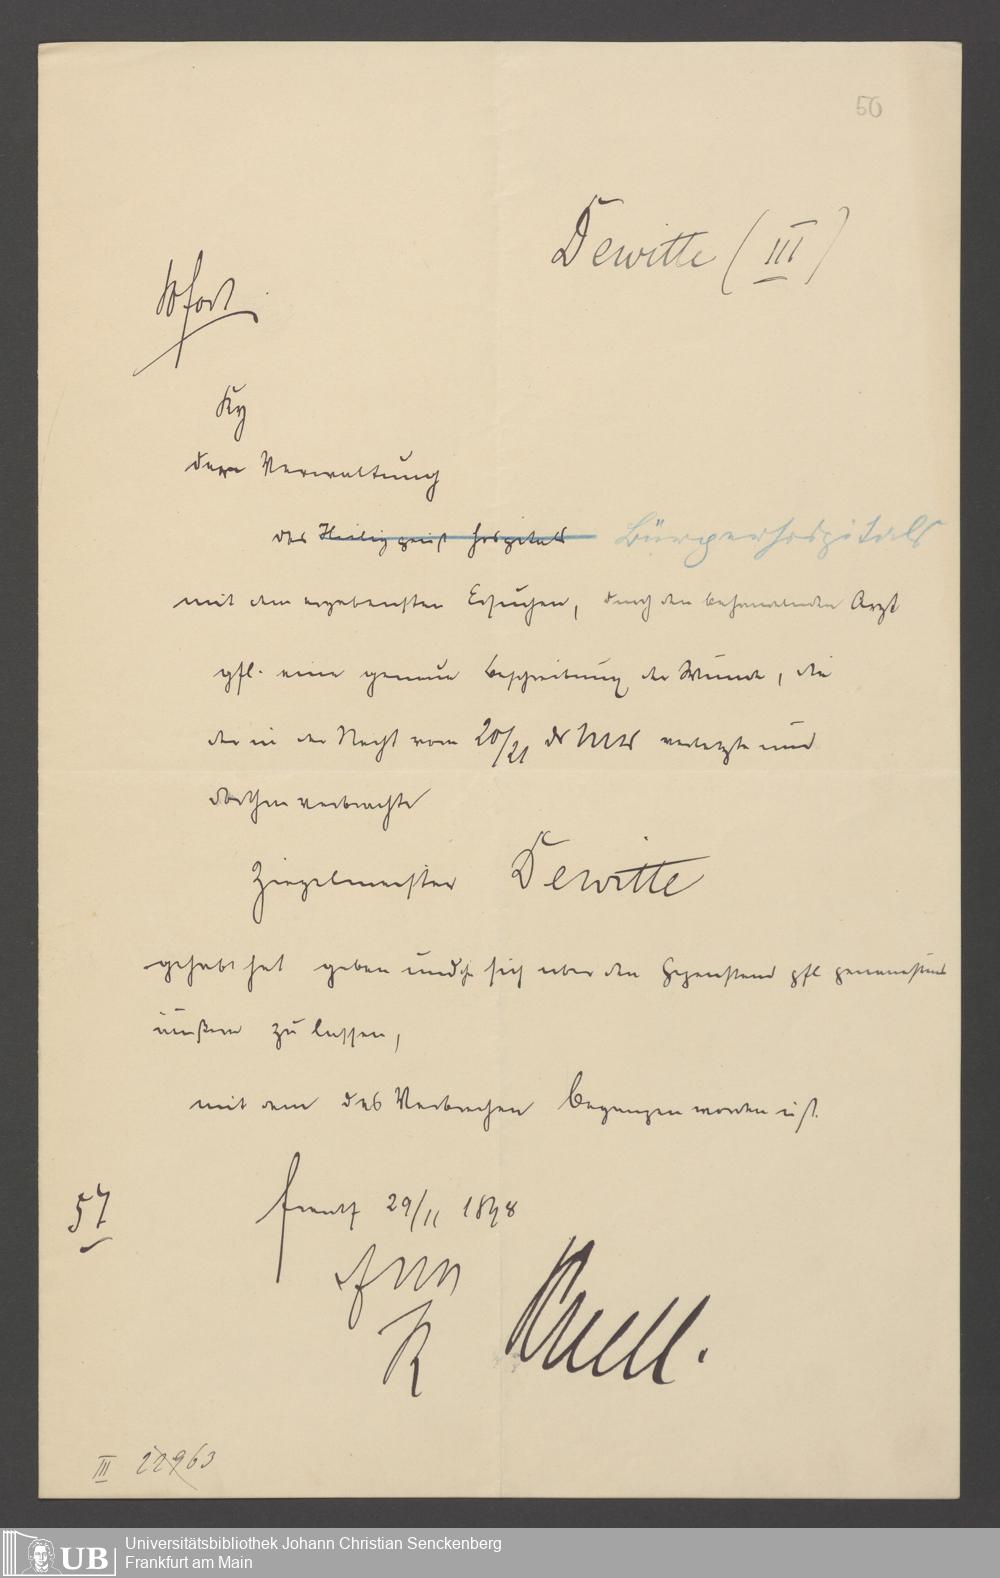 50
Dewitte (III)
Sofort.
der Verwaltung
des Heilig geist hospitals Bürgerhospitals
mit dem ergebensten Ersuchen, durch den behandelnden Arzt
gfl. eine genaue Beschreibung der Wunde, die
der in der Nacht vom 20/21 ds Mts verletzte und
dorthin verbrachte
Ziegelmeister Dewitte
gehabt hat geben und sich über den Gegenstand gfl
äußern zu lassen,
mit dem das Verbrechen begangen worden ist.
57
29/11 1898
III 22963
Universitätsbibliothek Johann Christian Senckenberg
Frankfurt am Main
UB